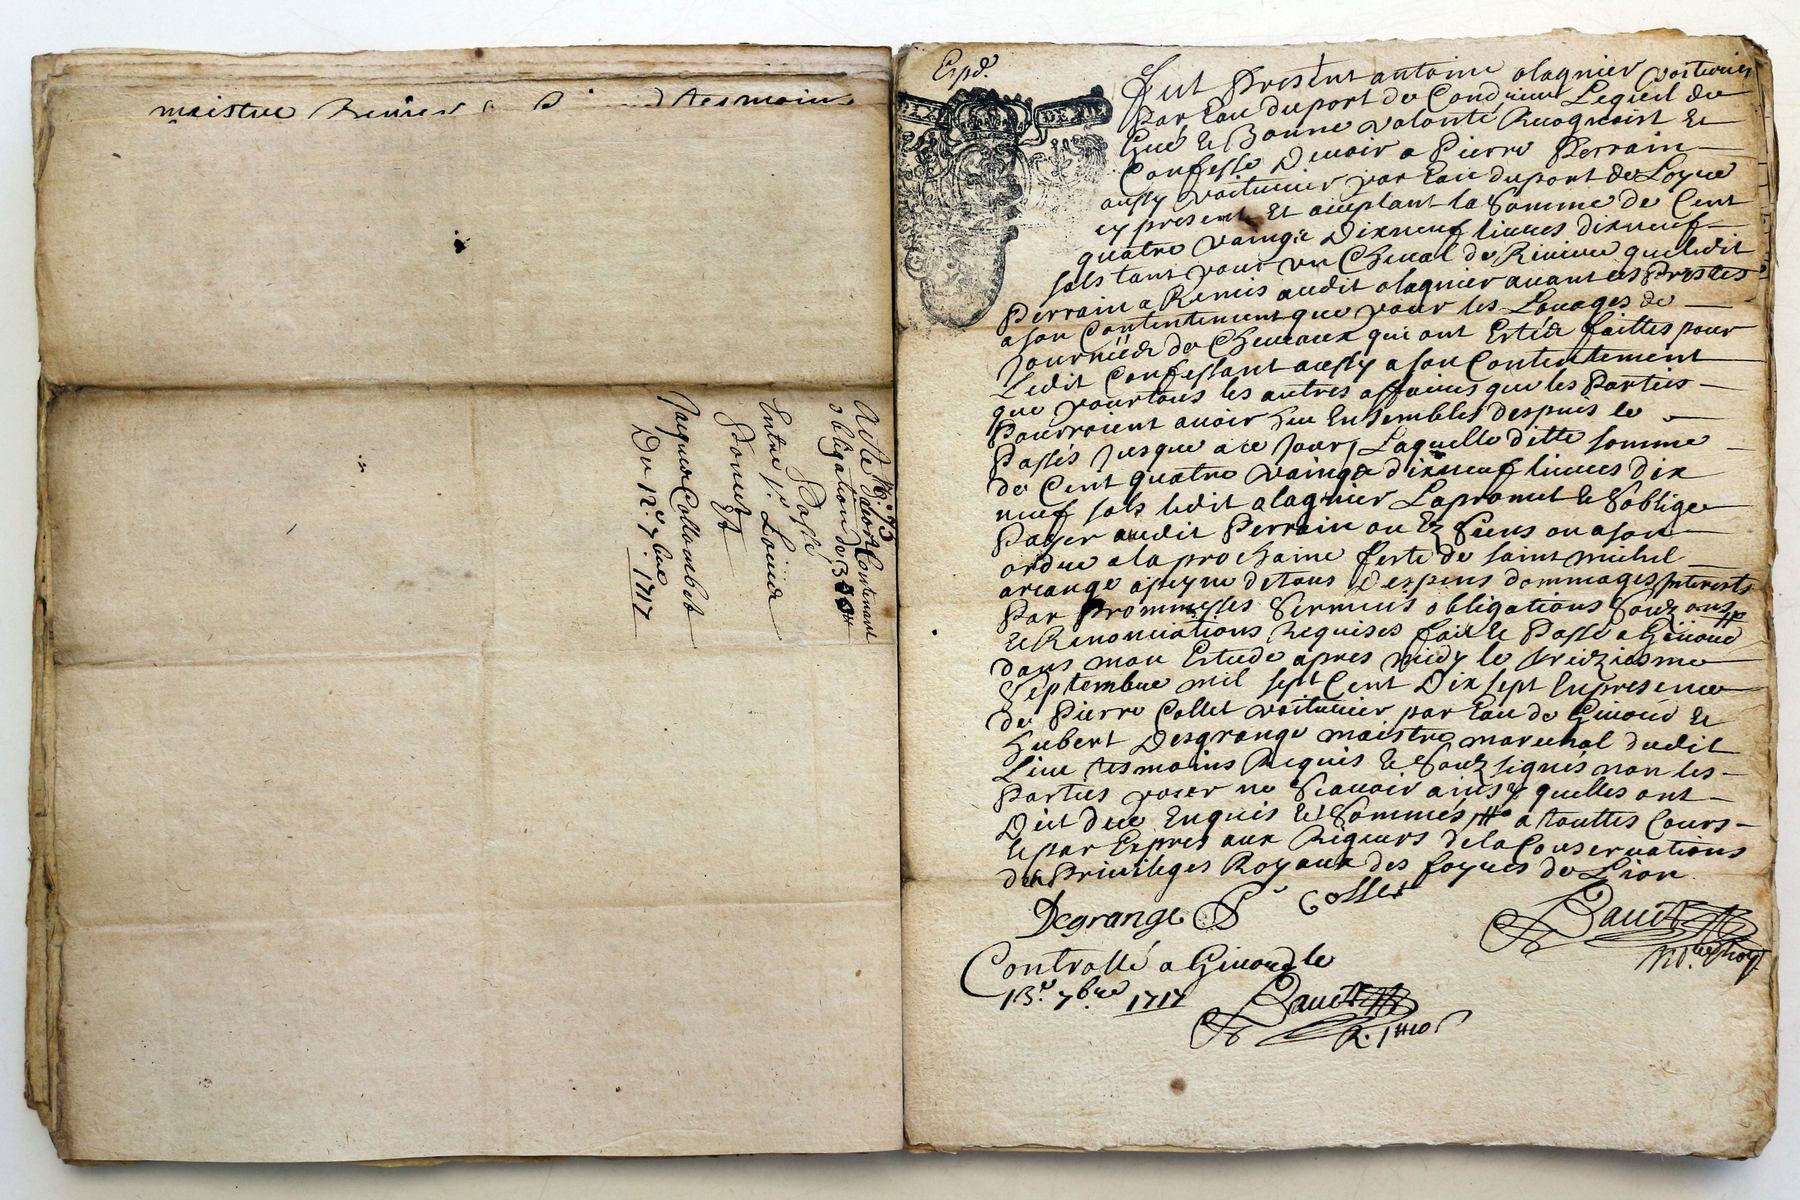 maistre
tesmoins
N.º 73
Acte dabort Contenant
obligation de 3
Passé
Entre S.r Louis
Donnet
Et
Jaques Collombet
Du 12.e 7bre 1717
Expd.
Fut Present antoine olagnier voiturier
Par Eau du port de Condrieu Lequel de
Gué et Bonne volonté Recognoist et
Confesse Devoir a Pierre Perrain
aussy voiturier par Eau du port de Loyre
cy present Et acceptant la Somme de Cent
quatre vaingts Dixneuf livres dixneuf
sols tant pour un Cheval de Riviere que ledit
Perrain a Remis audit olagnier avant ces Pntes
a son Contentement que pour les Louages de
Journées de Chevaux qui ont Estéz faittes pour
Ledit Confessant aussy a son Contentement
que pour tous les autres affaires que les Parties
Pourroient avoir heu Ensembles despuis le
Passés Jusque a ce Jour, Laquelle ditte somme
de Cent quatre vaingts dixneuf livres dix
neuf sols ledit olagnier La promet et S'oblige
Payer audit Perrain ou Ez Siens ou a son
ordre a la prochaine feste de Saint michel
arcange a peyne de tous Despens dommages Interests
Par Prommesses Sermens obligations Souz
et Renonciations Requises fait et Passé a Givord
dans mon Estude apres midy le treiziesme
Septembre mil sept Cent Dix sept En presence
de Pierre Collet voiturier par Eau de Givord et
hubert Desgrange maistre marechal dudit
Lieu tesmoins Requis et Souzsignés non les
Parties pour ne Scavoir ainsy quelles ont
Dict due Enquis et Sommés a touttes Cours
et par Expres aux Rigeurs de la Conservations
des Privileges Royaux des foyres de Lion
Degrange P Collet
Controllé a Givord le
13.e 7bre 1717